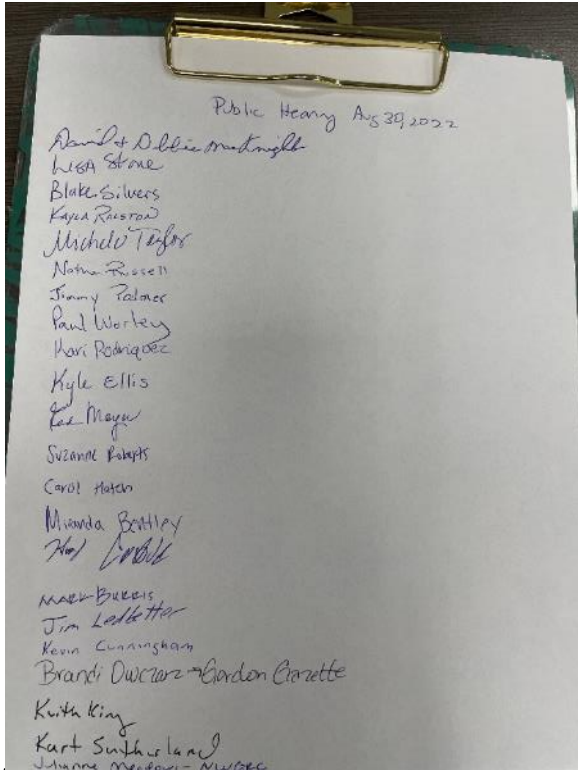 Public Hearing Aug 30, 2022
David & Debbie McKnight
LISA Stone
Blake Silvers
Kayla Ralston
Michele Taylor
Nathan Russell
Jimmy Palmer
Paul Worley
Kari Rodriguez
Kyle Ellis
Meyer
Suzanne Roberts
Carol Hatch
Miranda Bentley
MARK BURRIS
Jim Ledbetter
Kevin Cunningham
Brandi Owczarz - Gordon Gazette
Keith King
Kurt Sutherland
Julianne Meadows - NWGRC